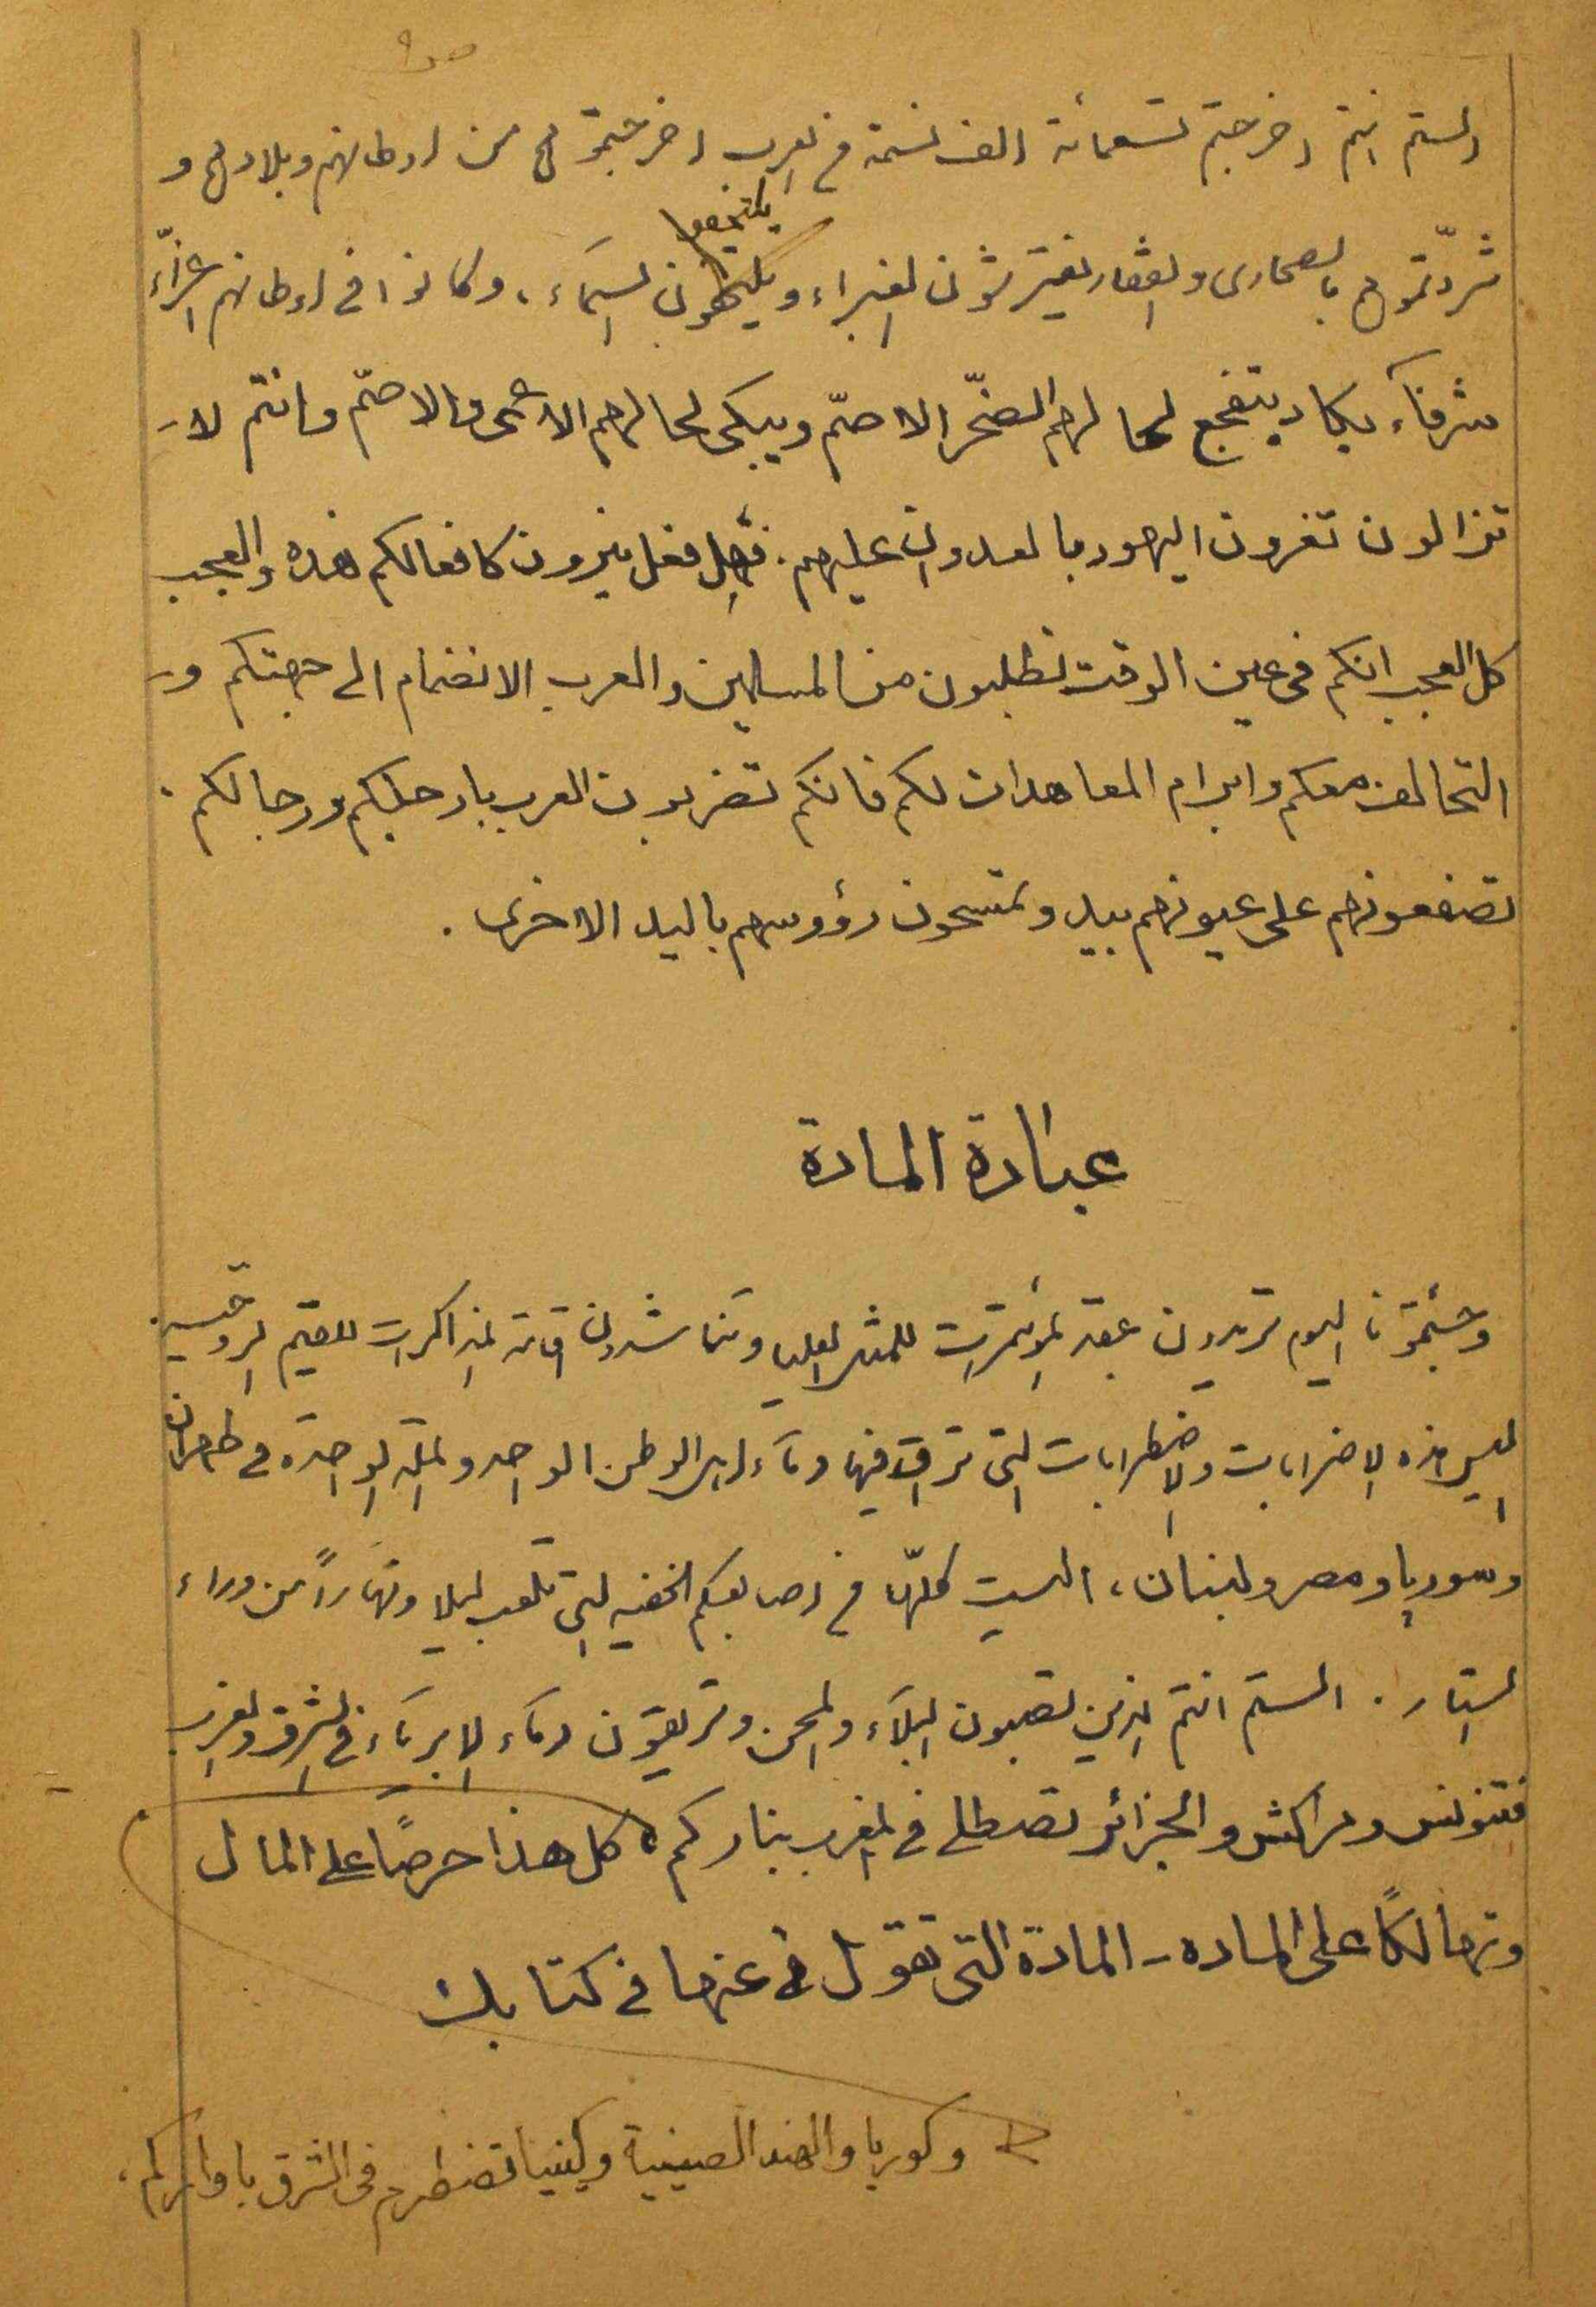 ص ٩
الستم انتم اخرجتم تسعمائة الف نسمة من العرب اخرجتموهم من اوطانهم وبلادهم و
شرّدتموهم بالصحارى والقفار يفترشون الغبراء ويلتحفون السمآء، وكانوا فى اوطانهم اعزّآء
شرفآء يكاد يتفجع لحالهم الصخر الاصمّ ويبكى لحالهم الاعمى والاصمّ وانتم لا
تزالون تغرون اليهود بالعدوان عليهم. فهل فعل نيرون كافعالكم هذه والعجب
كل العجب انكم فى عين الوقت تطلبون من المسلمين والعرب الانضمام الى جبهتكم و
التحالف معكم وابرام المعاهدات لكم فانكم تضربون العرب بارجلكم ورجالكم.
تصفعونهم على عيونهم بيد وتمسحون رؤوسهم باليد الاخرى.
عبادة المادة
وجئتمونا اليوم تريدون عقد المؤتمرات للمثل العليا وتناشدون اقامة المذاكرات للقيم الروحية.
اليس هذه الاضرابات والاضطرابات التى تراق فيها دمآء ابنا الوطن الواحد والملة الواحدة فى طهران
وسوريا ومصر ولبنان، اليست كلّها من اصابعكم الخفية التى تلعب ليلا ونهاراً من وراء
الستار. الستم انتم الذين تصبون البلآء والمحن وتريقون دمآء الابريآء فى الشرق والغرب
فتونس ومراكش والجزائر تصطلى فى المغرب بناركم كل هذا حرصًا على المال
وتهالكًا على الماده - المادة التى تقول عنها فى كتابك
وكوريا والهند الصينية وكينيا تضطرم فى الشرق باواركم،